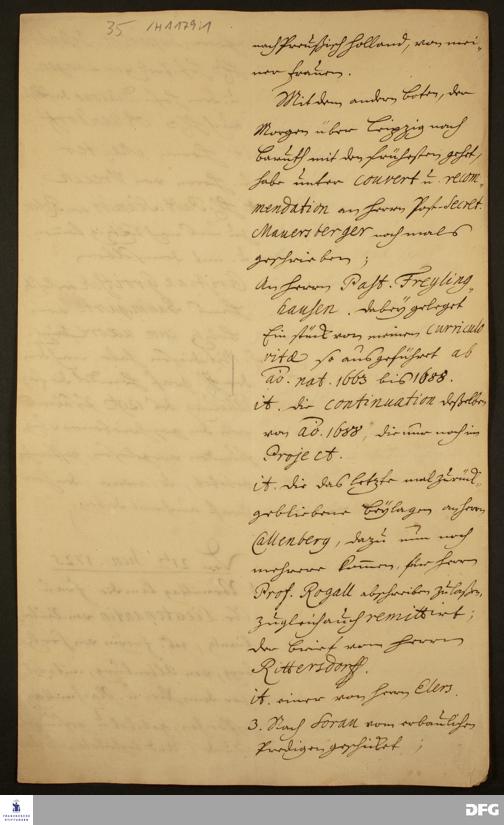 35 /H A 179:1
nach Preußisch Holland, von mei-
ner Frauen.
Mit dem andern boten, der
Morgen über Leipzig nach
baruth mit den frühesten gehet,
habe unter couvert u. recom-
mendation an Herrn Post-Secret.
Mauersberger nochmals
geschrieben;
An Herrn Past. Freyling-
hausen. dabey geleget
Ein stück von meinen curriculo
vitæ so ausgeführet ab
aõ. nat. 1663 bis 1688.
it. die continuation deßelben
von aõ. 1688, die nur noch im
Project.
it. die das letzte mal zurück-
gebliebene beylagen an Herrn
Callenberg, dazu nun noch
mehrere kommen, für Herrn
Prof. Rogall abschreiben zu laßen,
zugleich auch remittirt;
der brief vom Herrn
Rittersdorff.
it. einer von Herrn Elers.
3. Nach Sorau vom erbaulichen
Predigen geschicket;
FRANCKESCHE
STIFTUNGEN
DFG